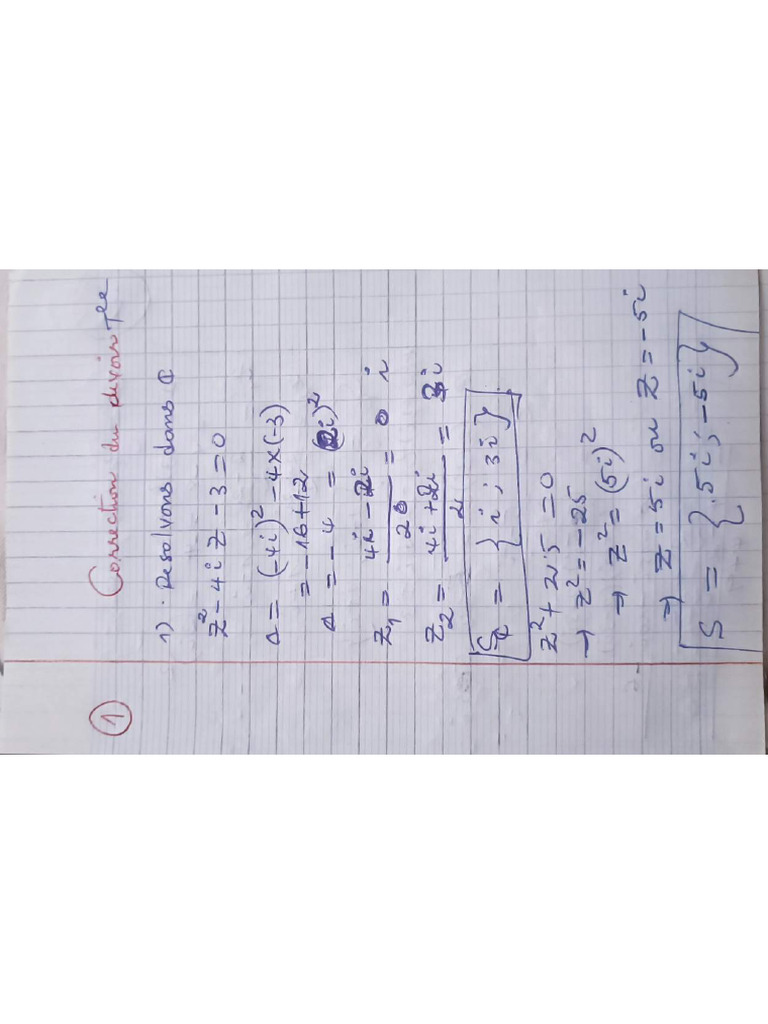 ①
Correction du devoir Tle
1). Resolvons dans ℂ
z² - 4iz - 3 = 0
Δ = (-4i)² - 4×(-3)
= -16 + 12
Δ = -4 = (2i)²
z₁ = (4i - 2i)/2 = i
z₂ = (4i + 2i)/2 = 3i
S_ℂ = {i ; 3i}
z² + 25 = 0
→ z² = -25
→ z² = (5i)²
→ z = 5i ou z = -5i
S = {5i ; -5i}